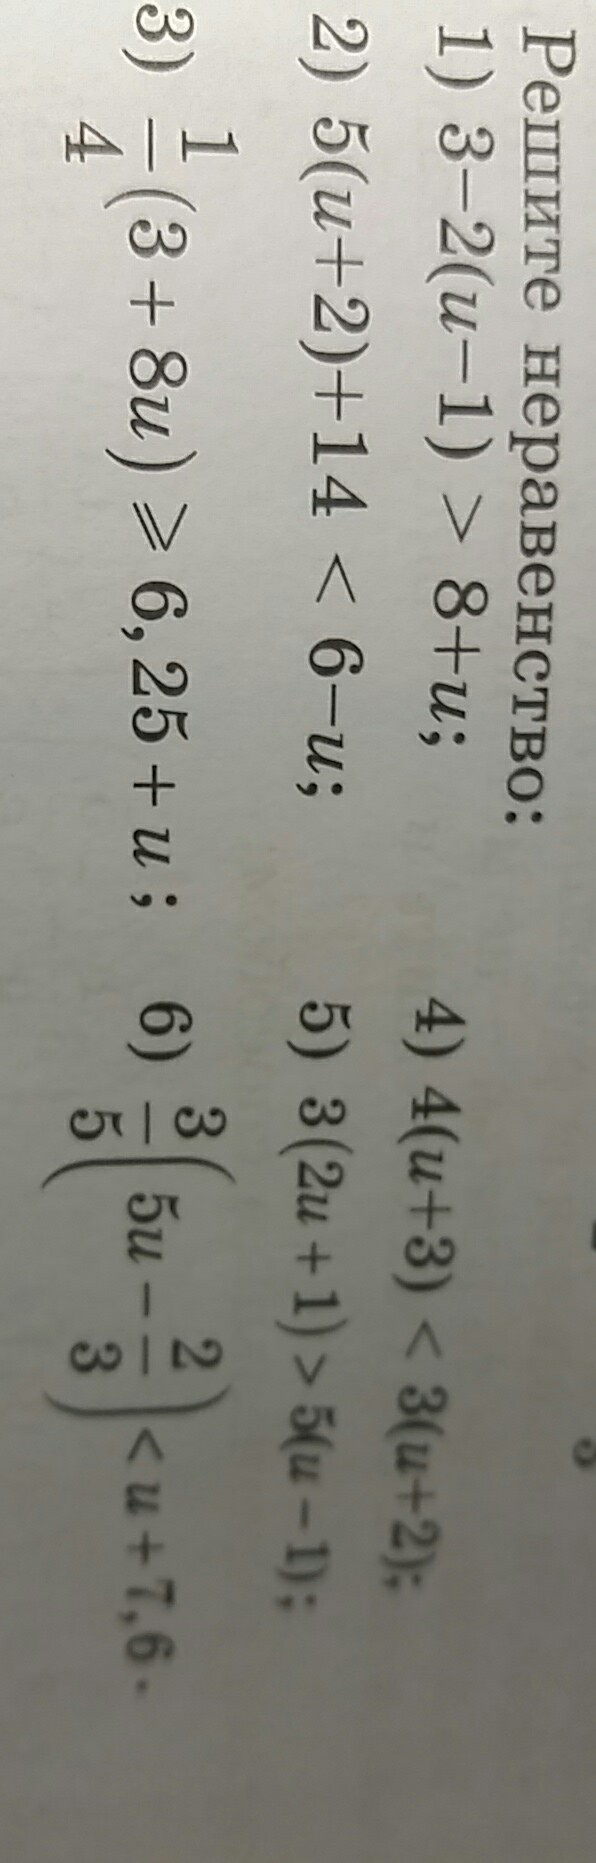 Решите неравенство:
1) 3–2(u–1) > 8+u;
2) 5(u+2)+14 < 6–u;
3) 1/4(3 + 8u) ⩾ 6,25 + u;
4) 4(u+3) < 3(u+2);
5) 3(2u + 1) > 5(u – 1);
6) 3/5(5u – 2/3) < u + 7,6.